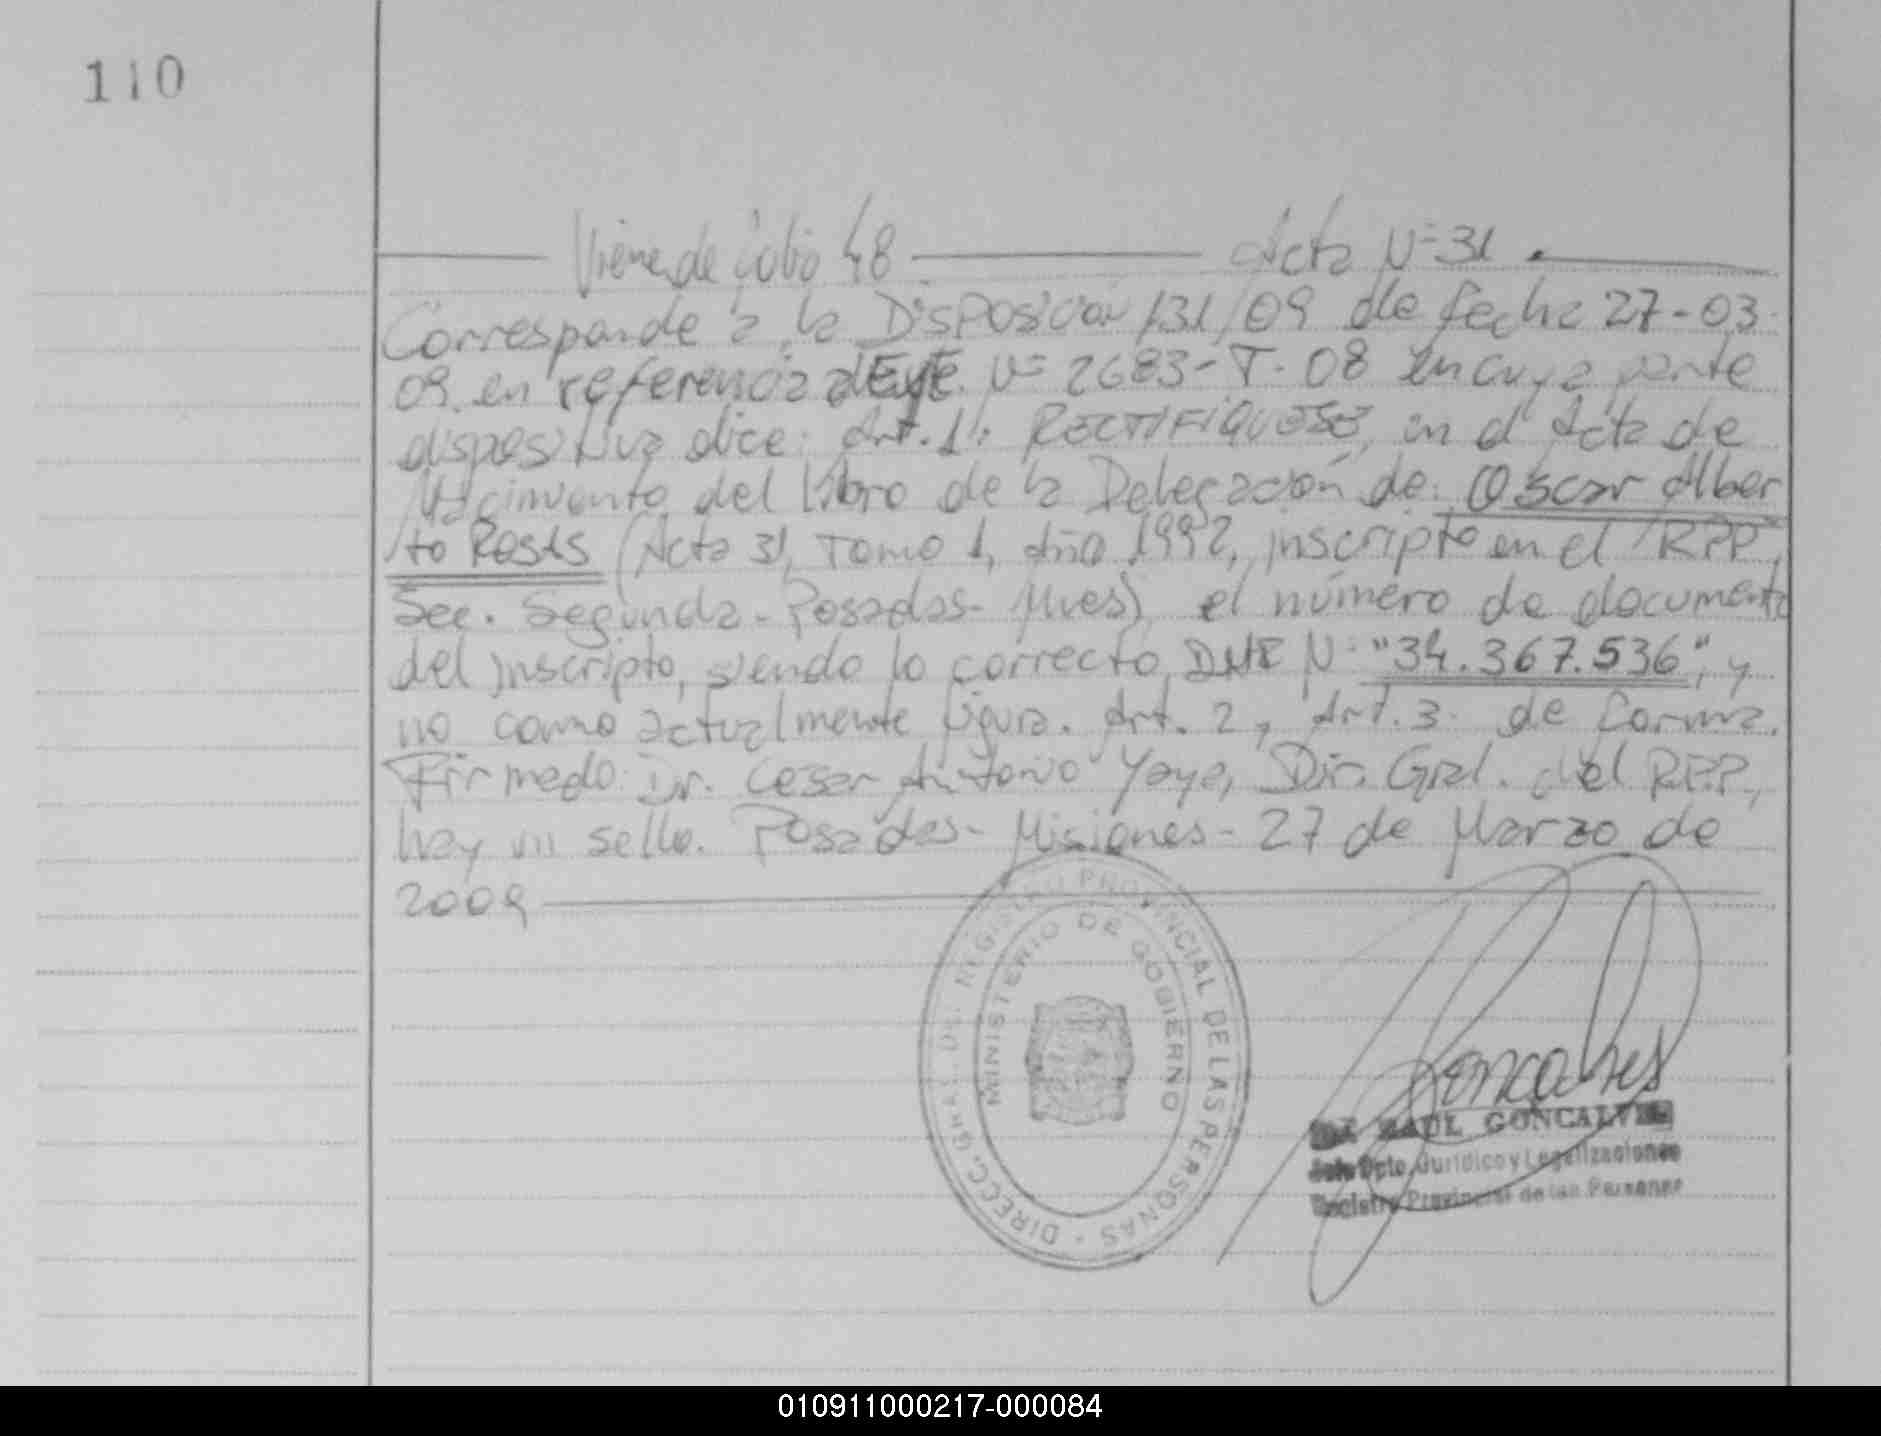 110
Viene de folio 48 Acta Nº 31.
Corresponde a la Disposición 131/09 de fecha 27-03-
09 en referencia al Expte. Nº 2683-T-08 en cuya parte
dispositiva dice: Art. 1: RECTIFIQUESE, en el Acta de
Nacimiento del libro de la Delegación de: Oscar Alber
to Rosas (Acta 31, Tomo 1, Año 1992, inscripto en el RPP,
Sec. Segunda - Posadas - Mnes), el número de documento
del inscripto, siendo lo correcto, DNI Nº: "34.367.536", y
no como actualmente figura. Art. 2, Art. 3. de Forma.
Firmado: Dr. Cesar Antonio Yaya, Dir. Gral. del RPP,
hay un sello. Posadas - Misiones - 27 de Marzo de
2009
DIRECC. GRAL. DEL REGISTRO PROVINCIAL DE LAS PERSONAS
MINISTERIO DE GOBIERNO
Goncalves
RAUL GONCALVES
Jefe Dpto. Jurídico y Legalizaciones
Registro Provincial de las Personas
010911000217-000084